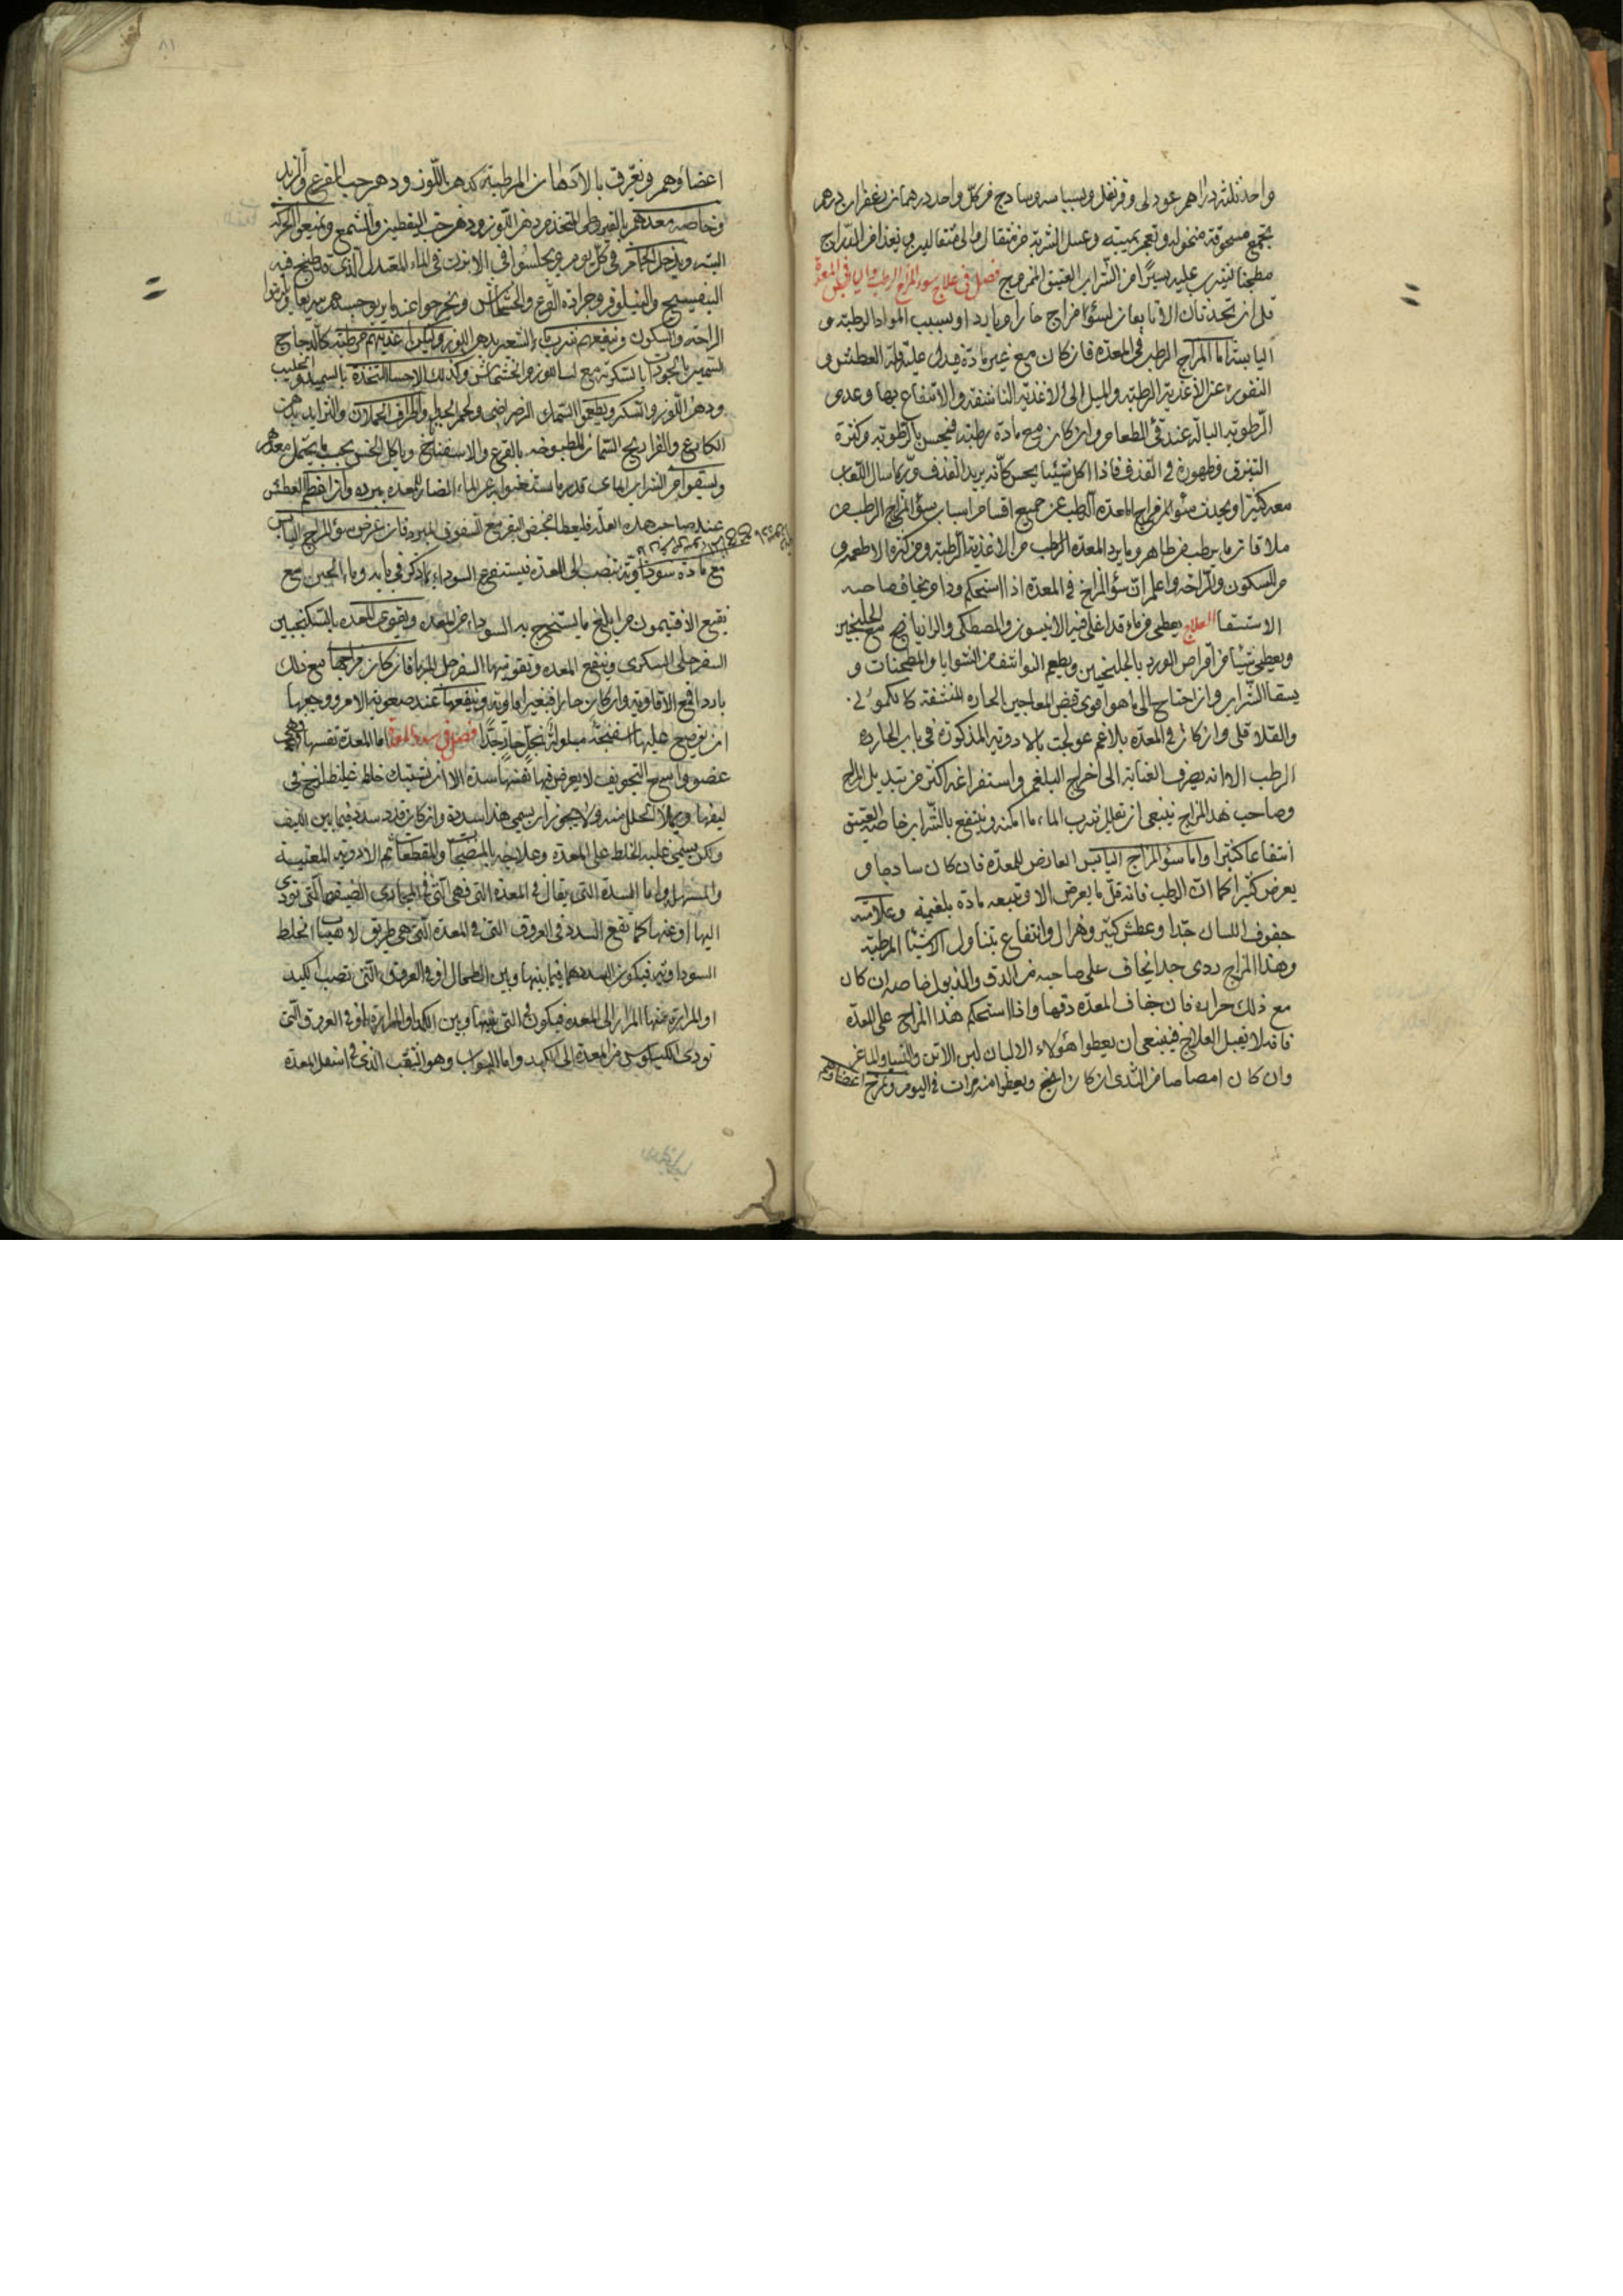 واحد ثلثة دراهم عود لى وقرنفل وبسباسه وساذج من كل واحد درهمان زعفران درهم
يجمع مسحوقة منخوله وتعجن بميبه وعسل الشربة من مثقال والى مثقالين ويغذا من الدراج
مطجنا يشرب عليه يسيرا من الشراب العتيق الممزوج فصل فى علاج سوء المزاج الرطب واليابس فى المعدة
قل ان يحدث الا تابعان لسؤ مزاج حار او بارد او بسبب المواد الرطبة و
اليابسة اما المزاج الرطب فى المعده فان كان مع غير مادة فيدل عليه قلة العطش و
النفور عن الاغذية الرطبة والميل الى الاغذية الناشفة والانتفاع بها وعدم
الرطوبة البالة عند قئ الطعام وان كان مع مادة رطبة فيحس بالرطوبة وكثرة
التبزق وظهوره فى القذف فاذا اكل شيئا يحس كانه يريد القذف وربما سال اللعاب
معه كثيرا ويحدث سؤ المزاج المعدة الرطب عن جميع اقسام اسباب سؤ المزاج الرطب من
ملاقاة ما يرطب من ظاهر وما يرد المعده الرطب من الاغذية الرطبة ومن كثرة الاطعمه و
من السكون والراحه واعلم ان سؤ المزاج فى المعدة اذا استحكم وداوم يخاف صاحبه
الاستسقا العلاج يعطى من ماء قد اغلى فيه الانيسون والمصطكى والرازيانج مع الجلنجبين
ويعطى شيئا من اقراص الورد بالجلنجبين ويطعم النواشف من الشوايا والمطجنات و
يسقا الشراب وان احتاج الى ما هو اقوى فمن المعاجين الحاره المنشفة كالكمونى
والفلافلى وان كان فى المعدة بلاغم عولجت بالادوية المذكورة فى باب الحاره
الرطب الا انه يصرف العناية الى اخراج البلغم واستفراغه اكثر من تبديل المزاج
وصاحب هذا المزاج ينبغى ان يقلل شرب الماء ما امكنه وينتفع بالشراب خاصة العتيق
انتفاعا كثيرا واما سؤ المزاج اليابس العارض للمعدة فان كان ساذجا و
يعرض كثيرا كما ان الرطب فانه قل ما يعرض الا وتتبعه مادة بلغميه وعلامته
جفوف اللسان جدا وعطش كثير وهزال وانتفاع بتناول الاشيا المرطبة
وهذا المزاج ردى جدا يخاف على صاحبه من الدق والذبول خاصه ان كان
مع ذلك حراره فان جفاف المعدة دقها واذا استحكم هذا المزاج على المعدة
فانه لا يقبل العلاج فينبغى ان يعطوا هؤلاء الالبان لبن الاتن والنسا والماعز
وان كان امصاصا من الثدى ان كان انجح ويعطوا منه مرات فى اليوم وتمرخ اعضاؤهم
اعضاؤهم وتعرق بالادهان المرطبة كدهن اللوز ودهن حب القرع والزبد
وخاصه معدهم بالقيروطى المتخذ من دهن اللوز ودهن حب اليقطين والشمع ويمنعوا الحركة
البتة ويدخل الحمام فى كل يوم ويجلسوا فى الابزن فى الماء المعتدل الذى قد طبخ فيه
البنفسج والنيلوفر وجرادة القرع والخشخاش ويخرجوا عند ما يربو جسدهم سريعا ويلزموا
الراحه والسكون وينفعهم شرب ماء الشعير بدهن اللوز وليكن اغذيتهم مرطبة كالدجاج
السمين والجوذاب بالسكر مع لب اللوز والخشخاش وكذلك الاحسا المتخذة بالسميد والحليب
ودهن اللوز والسكر ويطعموا السمك الرضراضى ولحم الجدا واطراف الحملان
الكارع والفراريج السمان المطبوخه بالقرع والاسفناخ وياكل الخس بحسب ما يحتمل معدهم
ويسقوا من الشراب المائى قدر ما يستغنوا به عن الماء الضار للمعده ببرده وان افرط العطش
عند صاحب هذه العلة فليعطا مخيض البقر مع السفوف المبرد فان عرض سؤ المزاج اليابس
مع مادة سوداوية تنصب الى المعدة فيستفرغ السوداء بما ذكر فى بابه وماء الجبن مع
نقيع الافتيمون من ابلغ ما يستخرج به السوداء من المعده ويقوى المعده بالسكنجبين
السفرجلى السكرى وينفع المعده وتقويتها السفرجل المربا فان كان مزاجها مع ذلك
باردا فمع الافاويه وان كان حارا فبغير افاويه وينفعها عند صعوبة الامر ووجعها
ان يوضع عليها اسفنجة مبلولة بخل حار جدا فصل فى سدد المعدة اما المعدة نفسها فهى
عضو واسع التجويف لا يعرض فيها نفسها سدة الا ان يتشبك خلط غليظ لزج فى
ليفها وخملا تتخلل منه ولا يجوز ان يسمى هذا سدة وان كان قد سد فيما بين الليف
ولكن يسمى غلبة الخلط على المعدة وعلاجه بالمنضجات والمقطعات ثم الادويه المقيئة
والمسهلة واما السدة التى يقال فى المعدة التى فهى التى فى المجارى الضيقة التى تؤدى
اليها او عنها كما تقع السدد فى العروق التى فى المعدة التى هى طريق لانصباب الخلط
السوداويه فيكون السدد هما فيما بينها وبين الطحال او فى العروق التى تصب الكبد
او المرارة عنها المرار الى المعده فيكون فى التى بينها وبين الكبد او المرارة او فى العروق التى
تودى الكيلوس من المعدة الى الكبد واما البواب وهو الثقب الذى فى اسفل المعدة